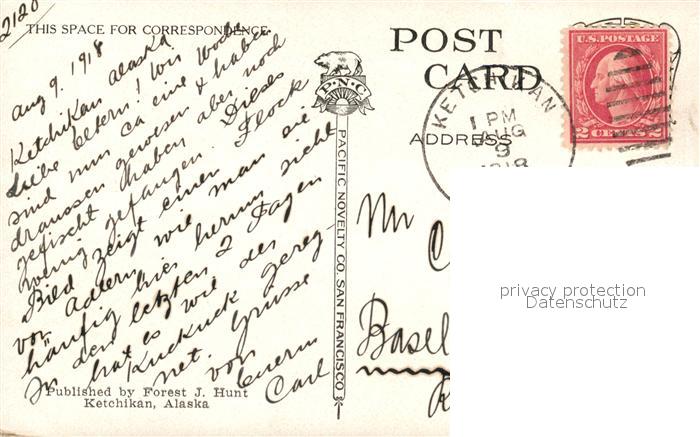 2120
THIS SPACE FOR CORRESPONDENCE
Aug 9. 1918
Ketchikan Alaska
Liebe Eltern! Wir
sind nun ca eine Woche
draussen gewesen & haben
gefischt haben aber noch
wenig gefangen. Dieses
Bild zeigt einen Flock
von Adlern wie man sie
häufig hier herum sieht
In den letzten 2 Tagen
hat es wie der
Kuckuck gereg-
net. Grüsse
von
Euerm
Carl
Published by Forest J. Hunt
Ketchikan, Alaska
P·N·C
PACIFIC NOVELTY CO. SAN FRANCISCO
POST
CARD
ADDRESS
U.S. POSTAGE
2 CENTS 2
KETCHIKAN
1 PM
AUG
9
1918
Mr
Basel
privacy protection
Datenschutz